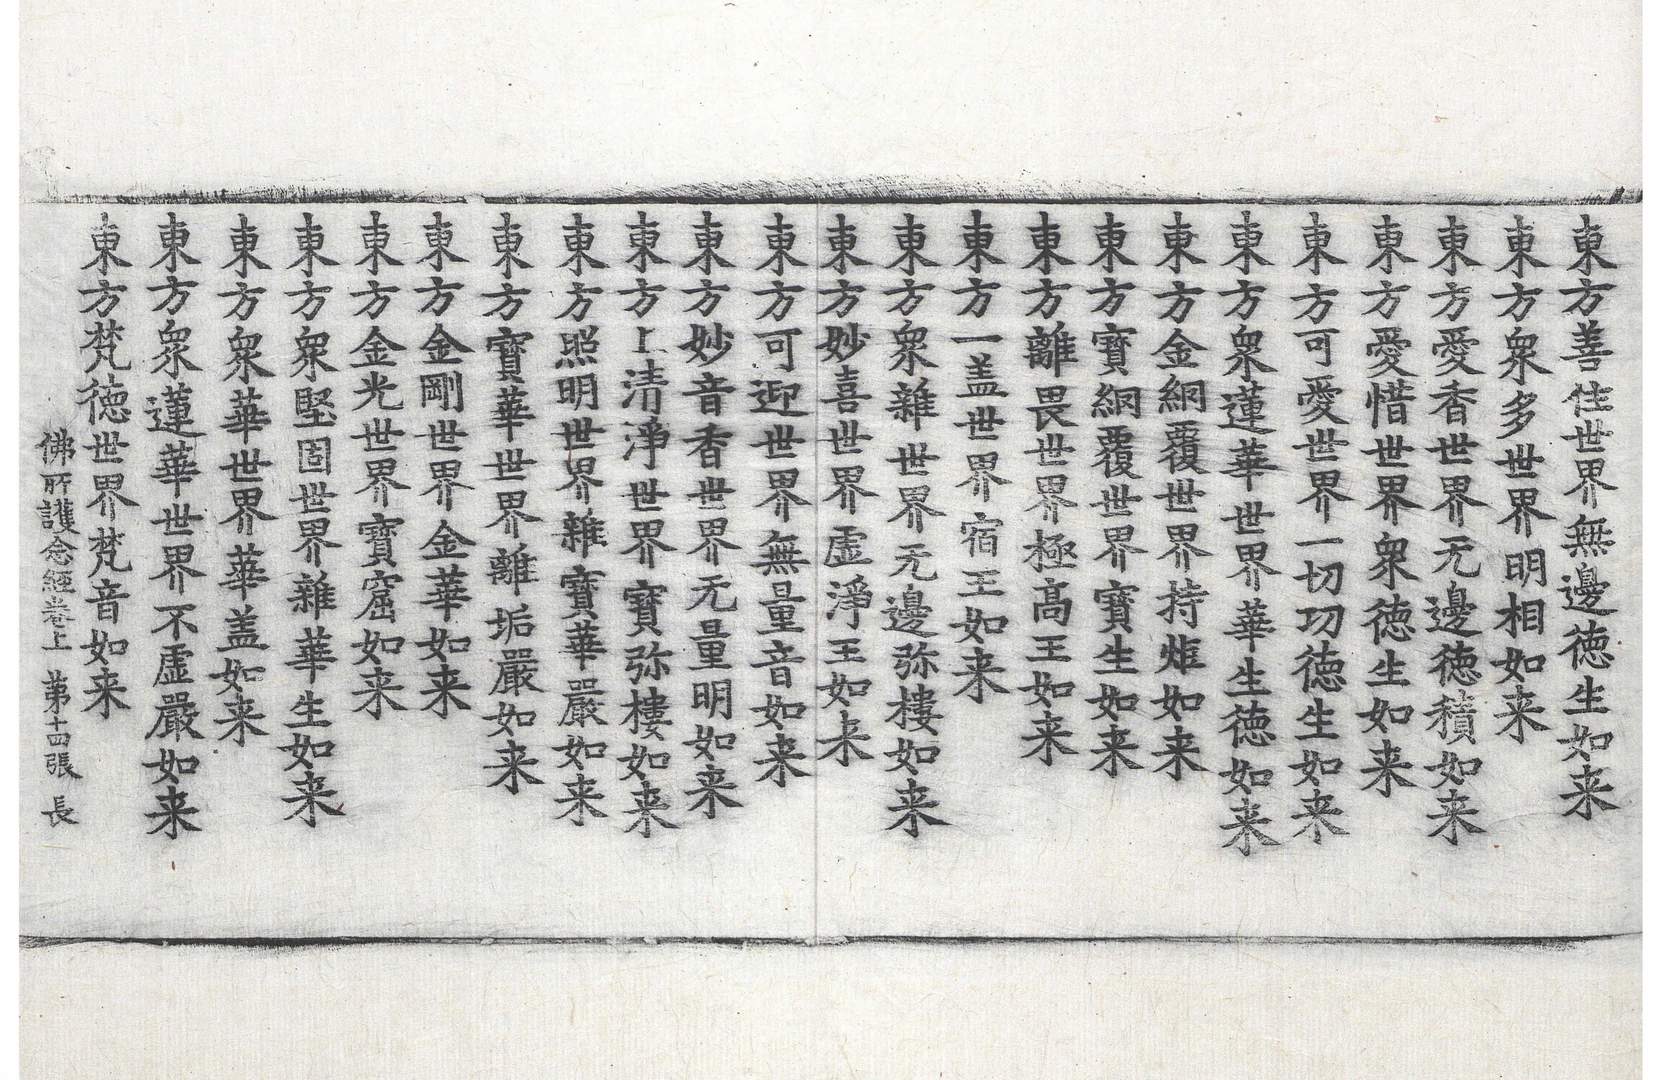 東方善住世界無邊徳生如来
東方衆多世界明相如来
東方愛香世界无邊徳積如来
東方愛惜世界衆徳生如来
東方可愛世界一切功徳生如来
東方衆蓮華世界華生徳如来
東方金網覆世界持炬如来
東方寶網覆世界寶生如来
東方離畏世界極高王如来
東方一盖世界宿王如来
東方衆雜世界无邊弥樓如来
東方妙喜世界虚淨王如来
東方可迎世界無量音如来
東方妙音香世界无量明如来
東方上清淨世界寶弥樓如来
東方照明世界雜寶華嚴如来
東方寶華世界離垢嚴如来
東方金剛世界金華如来
東方金光世界寶窟如来
東方衆堅固世界雜華生如来
東方衆華世界華盖如来
東方衆蓮華世界不虚嚴如来
東方梵徳世界梵音如来
佛所護念經卷上 第十四張 長